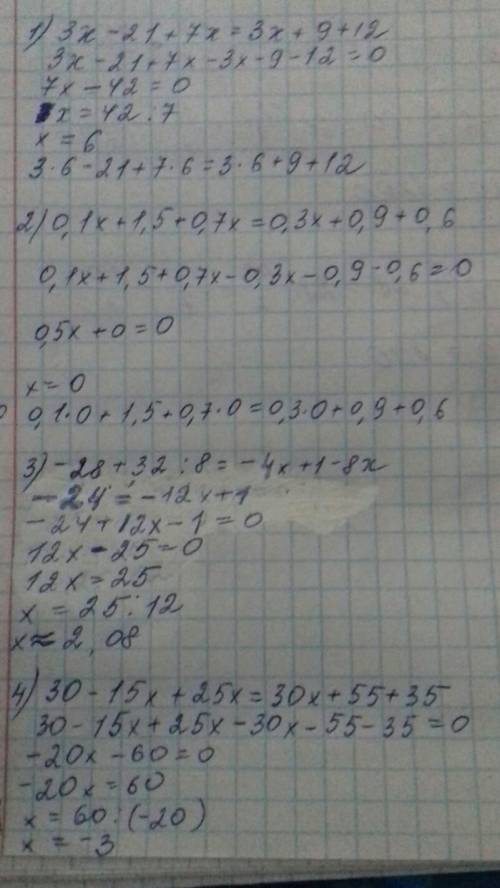 1) 3x - 21 + 7x = 3x + 9 + 12
3x - 21 + 7x - 3x - 9 - 12 = 0
7x - 42 = 0
x = 42 : 7
x = 6
3 · 6 - 21 + 7 · 6 = 3 · 6 + 9 + 12
2) 0,1x + 1,5 + 0,7x = 0,3x + 0,9 + 0,6
0,1x + 1,5 + 0,7x - 0,3x - 0,9 - 0,6 = 0
0,5x + 0 = 0
x = 0
0,1 · 0 + 1,5 + 0,7 · 0 = 0,3 · 0 + 0,9 + 0,6
3) - 28 + 32 : 8 = - 4x + 1 - 8x
- 24 = - 12x + 1
- 24 + 12x - 1 = 0
12x - 25 = 0
12x = 25
x = 25 : 12
x ≈ 2,08
4) 30 - 15x + 25x = 30x + 55 + 35
30 - 15x + 25x - 30x - 55 - 35 = 0
-20x - 60 = 0
-20x = 60
x = 60 : (-20)
x = -3